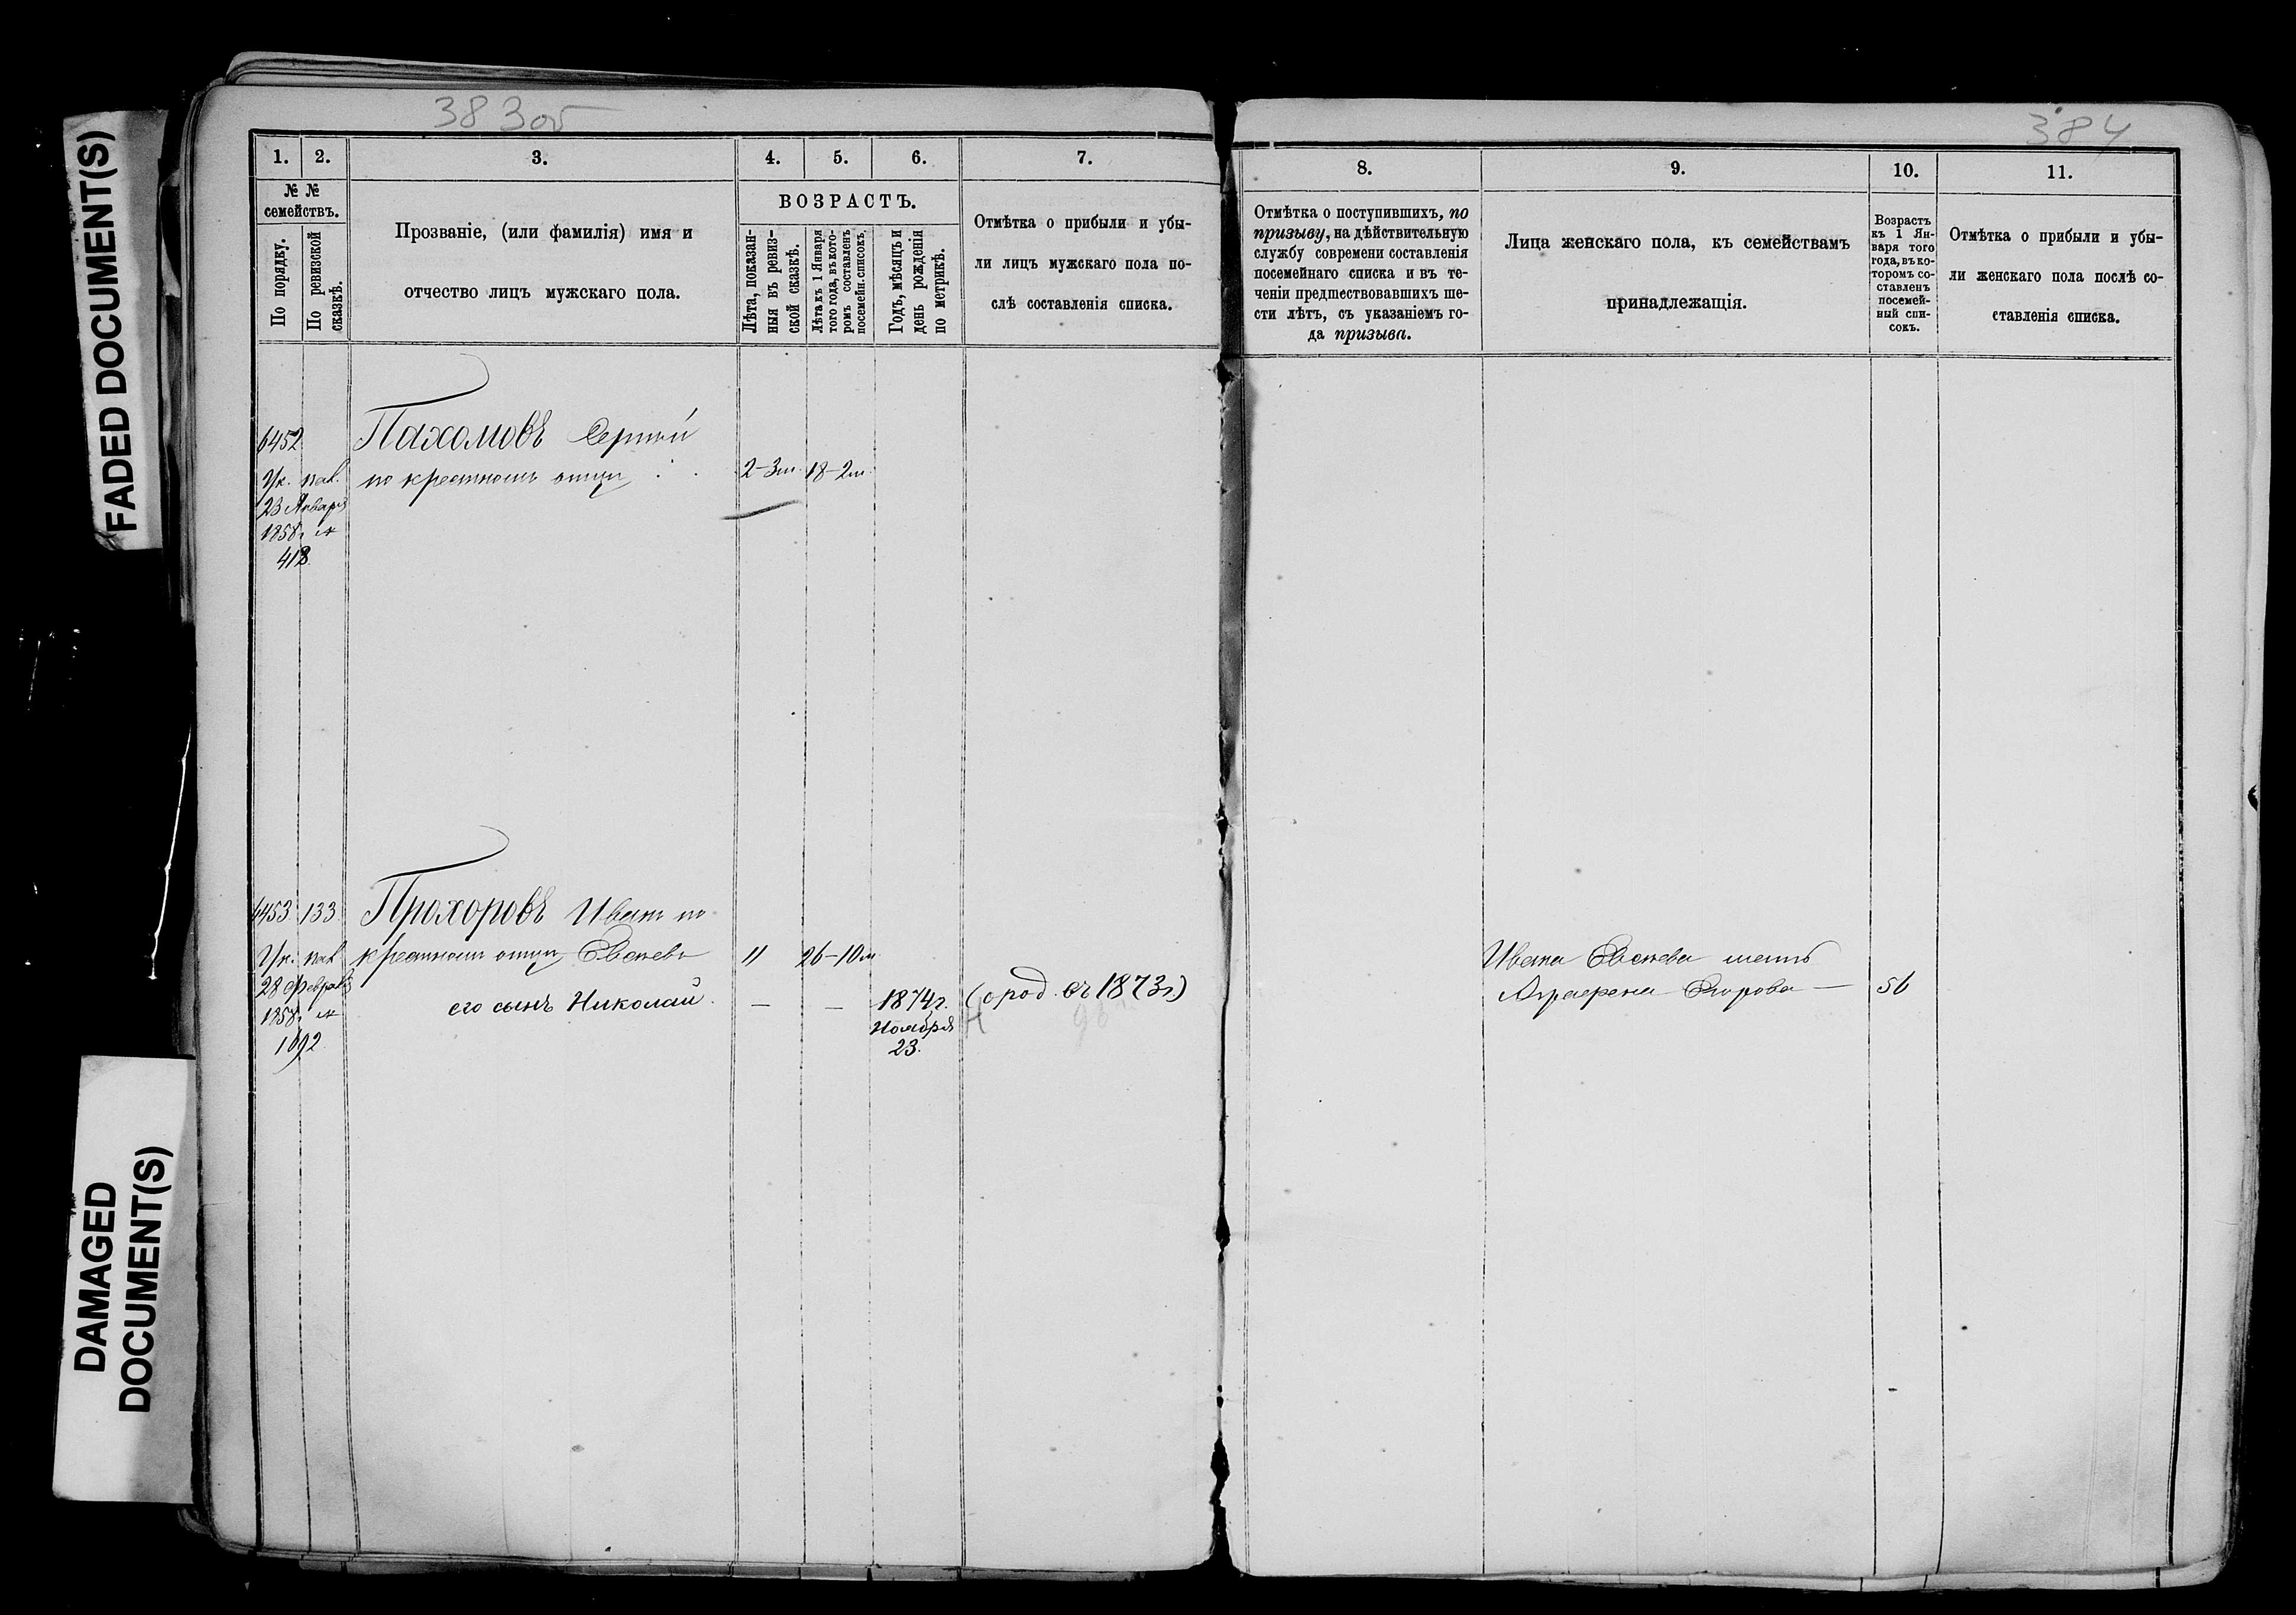 FADED DOCUMENT(S)
DAMAGED
DOCUMENT(S)
383об
1.
2.
3.
4.
5.
6.
7.
№ №
семействъ.
По порядку.
По ревизской
сказкѣ.
Прозваніе, (или фамилія) имя и
отчество лицъ мужскаго пола.
ВОЗРАСТЪ.
Лѣта, показан-
ныя въ ревиз-
ской сказкѣ.
Лѣта къ 1 Января
того года, въ кото-
ромъ составленъ
посемейн. списокъ.
Годъ, мѣсяцъ и
день рожденія
по метрикѣ.
Отмѣтка о прибыли и убы-
ли лицъ мужскаго пола по-
слѣ составленія списка.
6452
Пахомовъ Сергѣй
Ук. пал. по крестному отцу 2-3м. 18-2м.
23 Января
1858г №
418
6453 133 Прохоровъ Иванъ по
Ук. пал. крестному отцу " 26-10м
28 Февраля
его сынъ Николай. — — 1874г. (срод. съ 1873г)
1858г №
Ноября
1692
23.
384
8.
9.
10.
11.
Отмѣтка о поступившихъ, по
призыву, на дѣйствительную
службу современи составленія
посемейнаго списка и въ те-
ченіи предшествовавшихъ ше-
сти лѣтъ, съ указаніемъ го-
да призыва.
Лица женскаго пола, къ семействамъ
принадлежащія.
Возрастъ
къ 1 Ян-
варя того
года, въ ко-
торомъ со-
ставленъ
посемей-
ный спи-
сокъ.
Отмѣтка о прибыли и убы-
ли женскаго пола послѣ со-
ставленія списка.
Ивана жена
Аграфена Егорова — 56